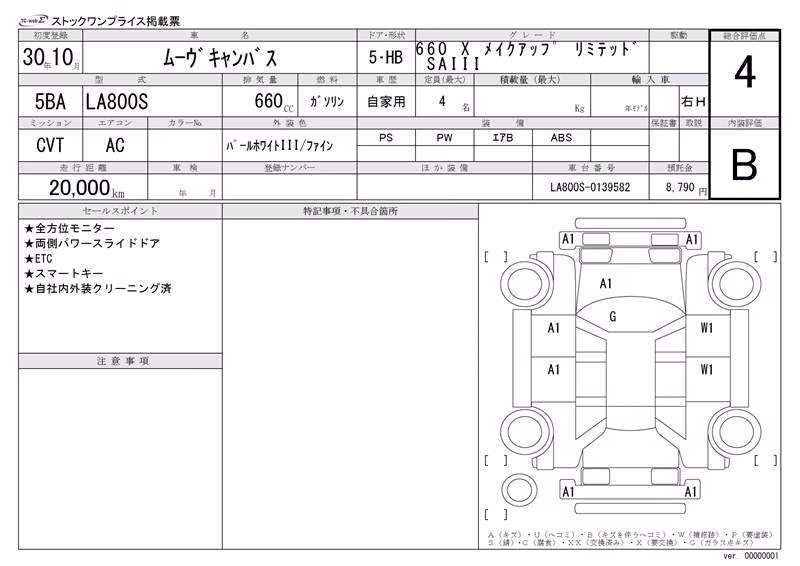 TC-webΣ ストックワンプライス掲載票
初度登録 車名 ドア・形状 グレード 駆動 総合評価点
30年10月 ムーヴキャンバス 5・HB 660 X メイクアップ リミテッド SAIII 4
型式 排気量 燃料 車歴 定員(最大) 積載量(最大) 輸入車
5BA LA800S 660CC ガソリン 自家用 4名 Kg 年モデル 右H
ミッション エアコン カラーNo. 外装色 装備 保証書 取説 内装評価
CVT AC パールホワイトIII/ファイン PS PW エアB ABS B
走行距離 車検 登録ナンバー ほか装備 車台番号 預託金
20,000km 年 月 LA800S-0139582 8,790円
セールスポイント 特記事項・不具合箇所
★全方位モニター
★両側パワースライドドア
★ETC
★スマートキー
★自社内外装クリーニング済
注意事項
A1 A1
[ ] [ ]
A1
G
A1 W1
A1 W1
[ ] [ ]
A1 A1
[ ]
A(キズ)・U(ヘコミ)・B(キズを伴うヘコミ)・W(補修跡)・P(要塗装)
S(錆)・C(腐食)・XX(交換済み)・X(要交換)・G(ガラス点キズ)
ver. 00000001